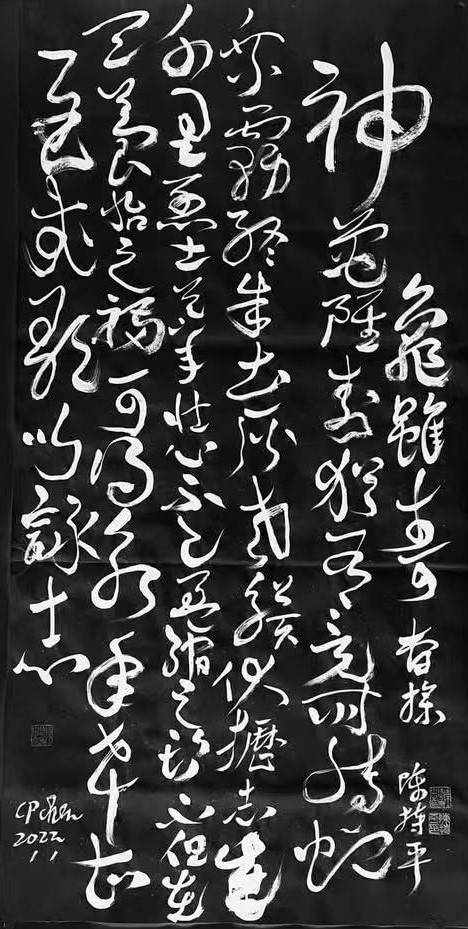 龜雖壽 曹操 陳持平
神龜雖壽猶有竟時騰蛇
乘霧終成土灰老驥伏櫪志在
千里烈士暮年壯心不已盈縮之期不但在
天養怡之福可得永年幸甚
至哉歌以詠志
CP Chen
2022
1.1